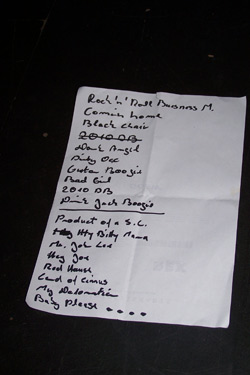 Rock'n'Roll Business M.
Comin home
Black chair
2010 DB
Dark Angel
Dirty Occ
Guitar Boogie
Bad Girl
2010 DB
Dirk Jack Boogie
Product of a S.C.
Itty Bitty Mama
Mr. Joe Lee
Hey Joe
Red House
Land of
My
Baby Please